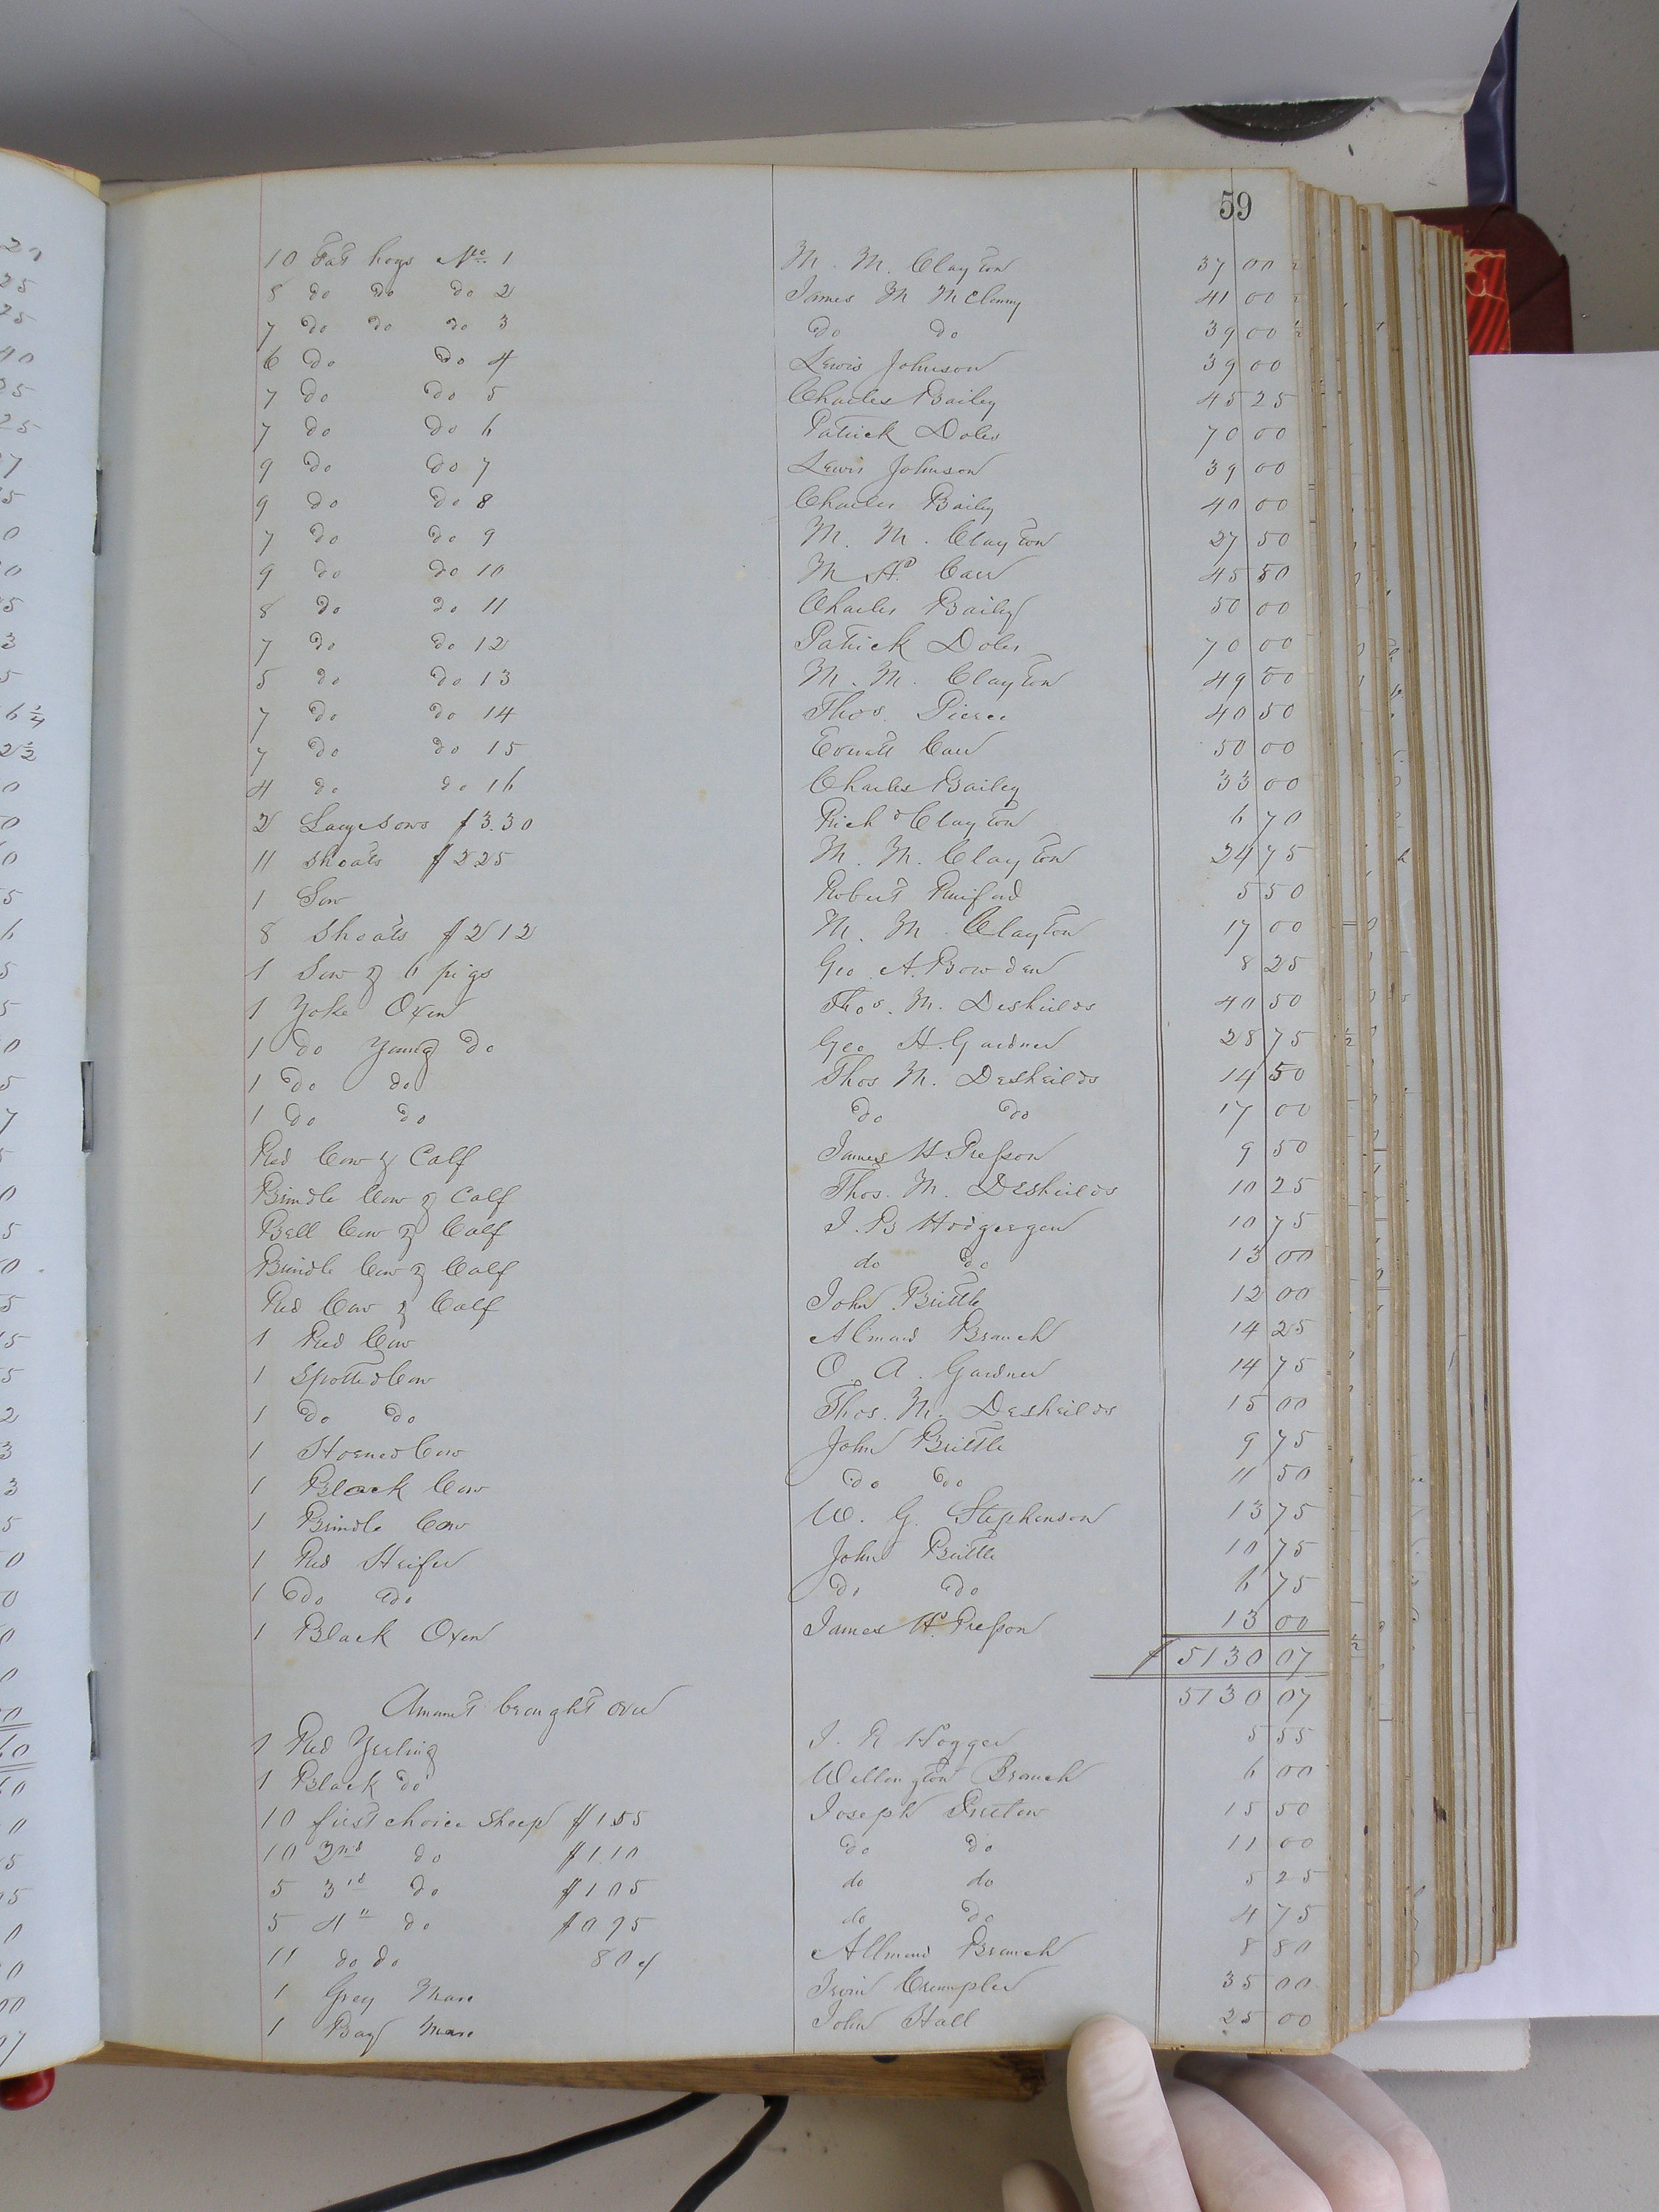 59
10 Fat hogs No. 1 M. M. Clayton 37 00
8 do do do 2 James M McClenny 41 00
7 do do do 3 do do 39 00
6 do do 4 Lewis Johnson 39 00
7 do do 5 Charles Bailey 45 25
7 do do 6 Patrick Doles 70 00
9 do do 7 Lewis Johnson 39 00
9 do do 8 Charles Bailey 40 00
7 do do 9 M. M. Clayton 27 50
9 do do 10 M H. Carr 45 50
8 do do 11 Charles Bailey 50 00
7 do do 12 Patrick Doles 70 00
5 do do 13 M. M. Clayton 49 00
7 do do 14 Thos. Pierce 40 50
7 do do 15 Carr 50 00
4 do do 16 Charles Bailey 33 00
2 Large Sows $3.30 Richd Clayton 6 70
11 Shoats $2 25 M. M. Clayton 24 75
1 Sow Robert 5 50
8 Shoats $2 12 M. M. Clayton 17 00
1 Sow & 6 pigs Geo. A. Bowden 8 25
1 Yoke Oxen Thos. M. Deshields 40 50
1 do Young do Geo H. Gardner 28 75
1 do do Thos M. Desheilds 14 50
1 do do do do 17 00
Red Cow & Calf James H. Presson 9 50
Brindle Cow & Calf Thos. M. Deshields 10 25
Bell Cow & Calf J. B 10 75
Brindle Cow & Calf do do 13 00
Red Cow & Calf John Brittle 12 00
1 Red Cow Almond Branch 14 25
1 Spotted Cow O. A. Gardner 14 75
1 do do Thos. M. Desheilds 15 00
1 Horned Cow John Brittle 9 75
1 Black Cow do do 11 50
1 Brindle Cow W. G. Stephenson 13 75
1 Red Heifer John Brittle 10 75
1 do do do do 6 75
1 Black Oxen James H. Presson 13 00
$ 5130 07
Amount brought over 5130 07
1 Red Yerling J. R 5 55
1 Black do Wellington Branch 6 00
10 first choice Sheep $1.55 Joseph 15 50
10 2nd do $1.10 do do 11 00
5 3rd do $1 05 do do 5 25
5 4" do $0 95 do do 4 75
11 do do 80 c Allmond Branch 8 80
1 Grey Mare Crumpler 35 00
1 Bay Mare John Hall 25 00